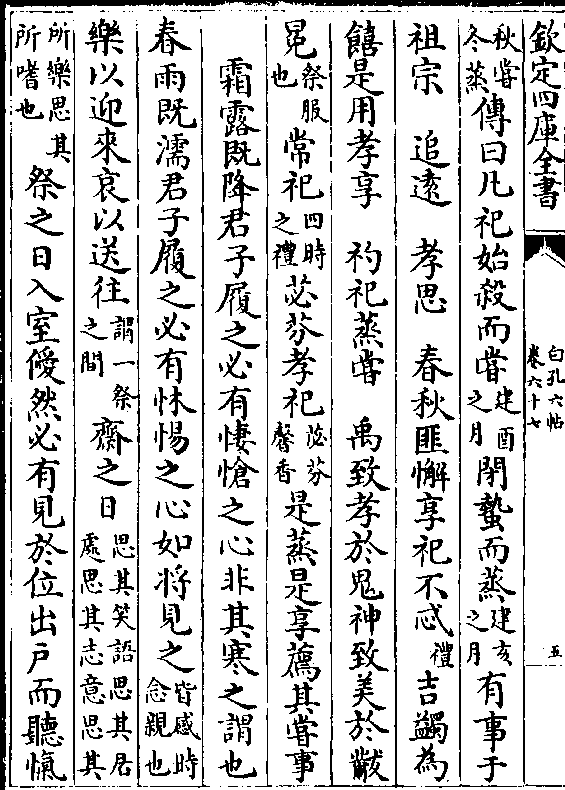 欽定四庫全書
白孔六帖
卷六十七
五
秋嘗冬蒸傳曰凡祀始殺而嘗建酉之月閉蟄而蒸建亥之月有事于
祖宗　追遠　孝思　春秋匪懈享祀不忒禮吉蠲為
饎是用孝享　礿祀蒸嘗　禹致孝於鬼神致美於黻
冕祭服也常祀四時之禮苾芬孝祀苾芬馨香是蒸是享薦其嘗事
霜露既降君子履之必有悽愴之心非其寒之謂也
春雨既濡君子履之必有怵惕之心如將見之皆感時念親也
樂以迎來哀以送往謂一祭之間齋之日思其笑語思其居處思其志意思其
所樂思其所嗜也祭之日入室僾然必有見於位出戶而聽愾